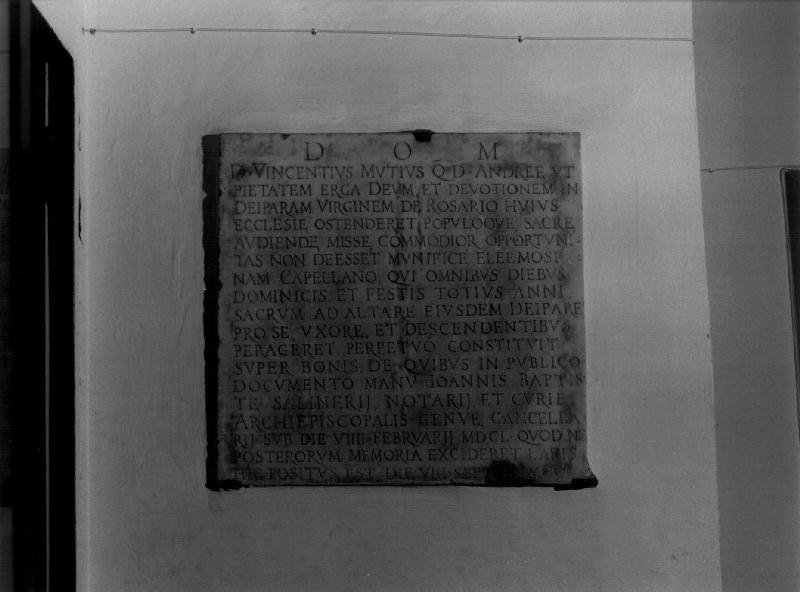 D O M
D·VINCENTIVS MVTIVS Q·D·ANDREE VT
PIETATEM ERGA DEVM, ET DEVOTIONEM IN
DEIPARAM VIRGINEM DE ROSARIO HVIVS
ECCLESIE OSTENDERET POPVLOQVE SACRE
AVDIENDE MISSE COMMODIOR OPPORTVNI-
TAS NON DEESSET MVNIFICE ELEEMOSI
NAM CAPELLANO, QVI OMNIBVS DIEBVS
DOMINICIS, ET FESTIS TOTIVS ANNI
SACRVM AD ALTARE EIVSDEM DEIPARE
PRO SE, VXORE, ET DESCENDENTIBVS
PERAGERET PERPETVO CONSTITVIT
SVPER BONIS, DE QVIBVS IN PVBLICO
DOCVMENTO MANV IOANNIS BAPTIS
TE SALINERIJ, NOTARIJ ET CVRIE
ARCHIEPISCOPALIS GENVE, CANCELLA
RIJ SVB DIE VIIII FEBRVARIJ MDCL·QVOD NE
POSTERORVM MEMORIA EXCIDERET LAPIS
HIC POSITVS EST DIE VIII